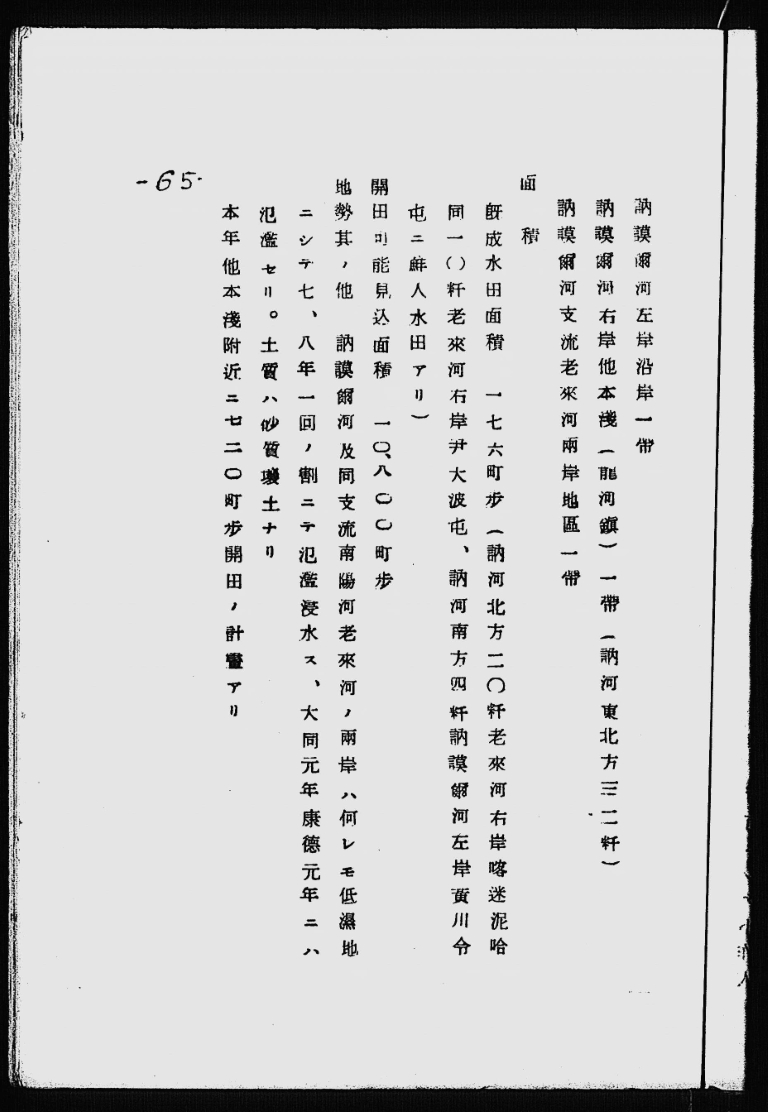 訥謨爾河左岸沿岸一帶
訥謨爾河右岸他本淺（龍河鎭）一帶（訥河東北方三二粁）
訥謨爾河支流老來河兩岸地區一帶
面積
既成水田面積　一七六町步（訥河北方二〇粁老來河右岸喀迷泥哈
同一〇粁老來河右岸尹大波屯、訥河南方四粁訥謨爾河左岸黃川令
屯ニ鮮人水田アリ）
開田可能見込面積　一〇、八〇〇町步
地勢其ノ他　訥謨爾河及同支流南陽河老來河ノ兩岸ハ何レモ低濕地
ニシテ七、八年一回ノ割ニテ氾濫浸水ス、大同元年康德元年ニハ
氾濫セリ。土質ハ砂質壤土ナリ
本年他本淺附近ニ七二〇町步開田ノ計畫アリ
-65-